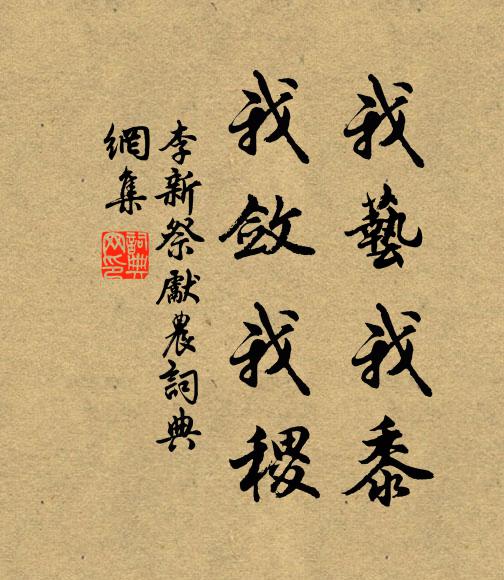 我藝我黍
我斂我稷
李新祭獻農詞典
網集
詞典
网印